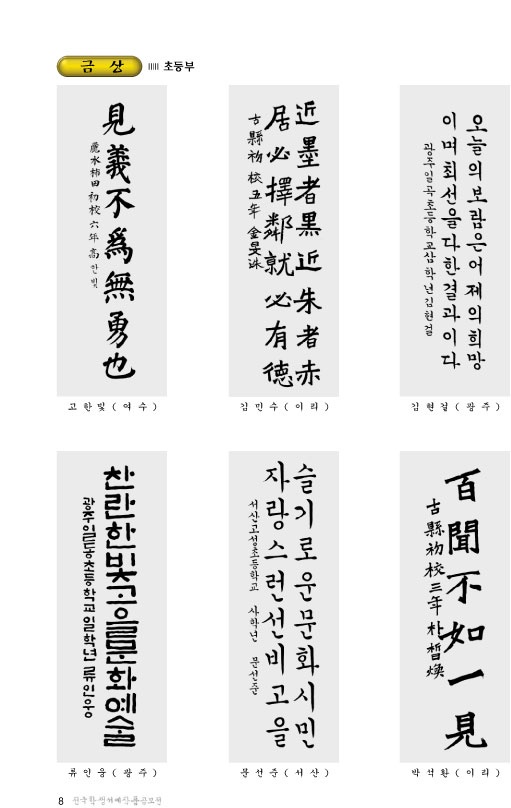 금 상 초등부
見義不爲無勇也
麗水柿田初校 六年 高한빛
고한빛(여수)
近墨者黑近朱者赤
居必擇鄰就必有德
古縣初校 五年 金旻洙
김민수(이리)
오늘의보람은어제의희망
이며최선을다한결과이다
광주일곡초등학교삼학년김현걸
김현걸(광주)
찬란한빛고을문화예술
광주일동초등학교일학년류인웅
류인웅(광주)
슬기로운문화시민
자랑스런선비고을
서산고성초등학교 사학년 문선준
문선준(서산)
百聞不如一見
古縣初校三年 朴晳煥
박석환(이리)
8